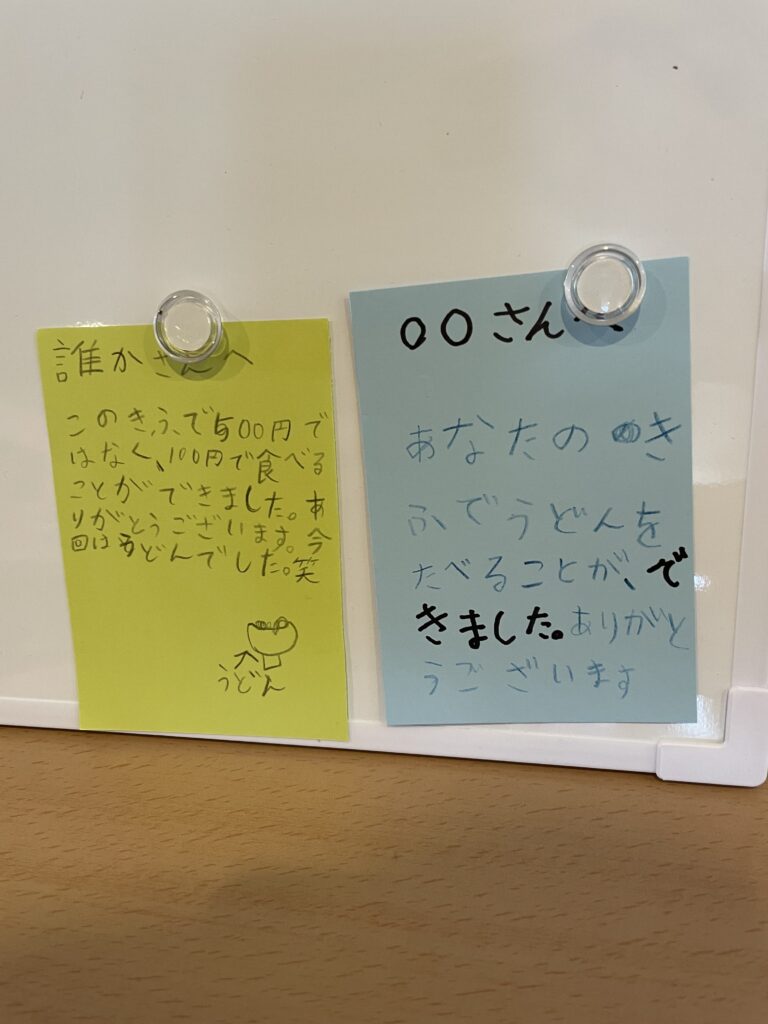 誰かさんへ
このきふで500円で
はなく、100円で食べる
ことができました。あ
りがとうございます。今
回はうどんでした。笑
うどん
〇〇さんへ
あなたのき
ふでうどんを
たべることが、で
きました。ありがと
うございます